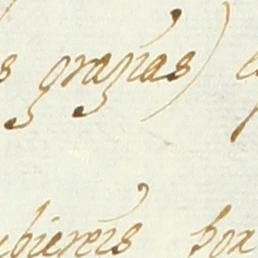 s grazias)
ubiereis por